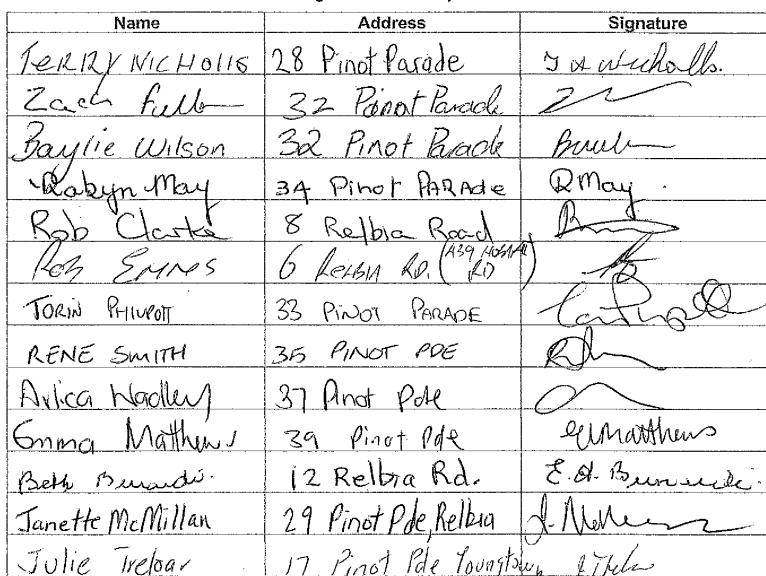 Name Address Signature
TERRY NICHOLLS 28 Pinot Parade T A Nicholls.
Zach Fuller 32 Pinot Parade
Baylie Wilson 32 Pinot Parade
Robyn May 34 Pinot PARAde R May
Rob Clarke 8 Relbia Road
Rob 6 RELBIA RD. RD)
TORIN PHILPOTT 33 PINOT PARADE
RENE SMITH 35 PINOT PDE
37 Pinot Pde
Emma Matthews 39 Pinot Pde Matthews
Beth 12 Relbia Rd. E. A.
Janette McMillan 29 Pinot Pde, Relbia
Julie Treloar 17 Pinot Pde Youngtown